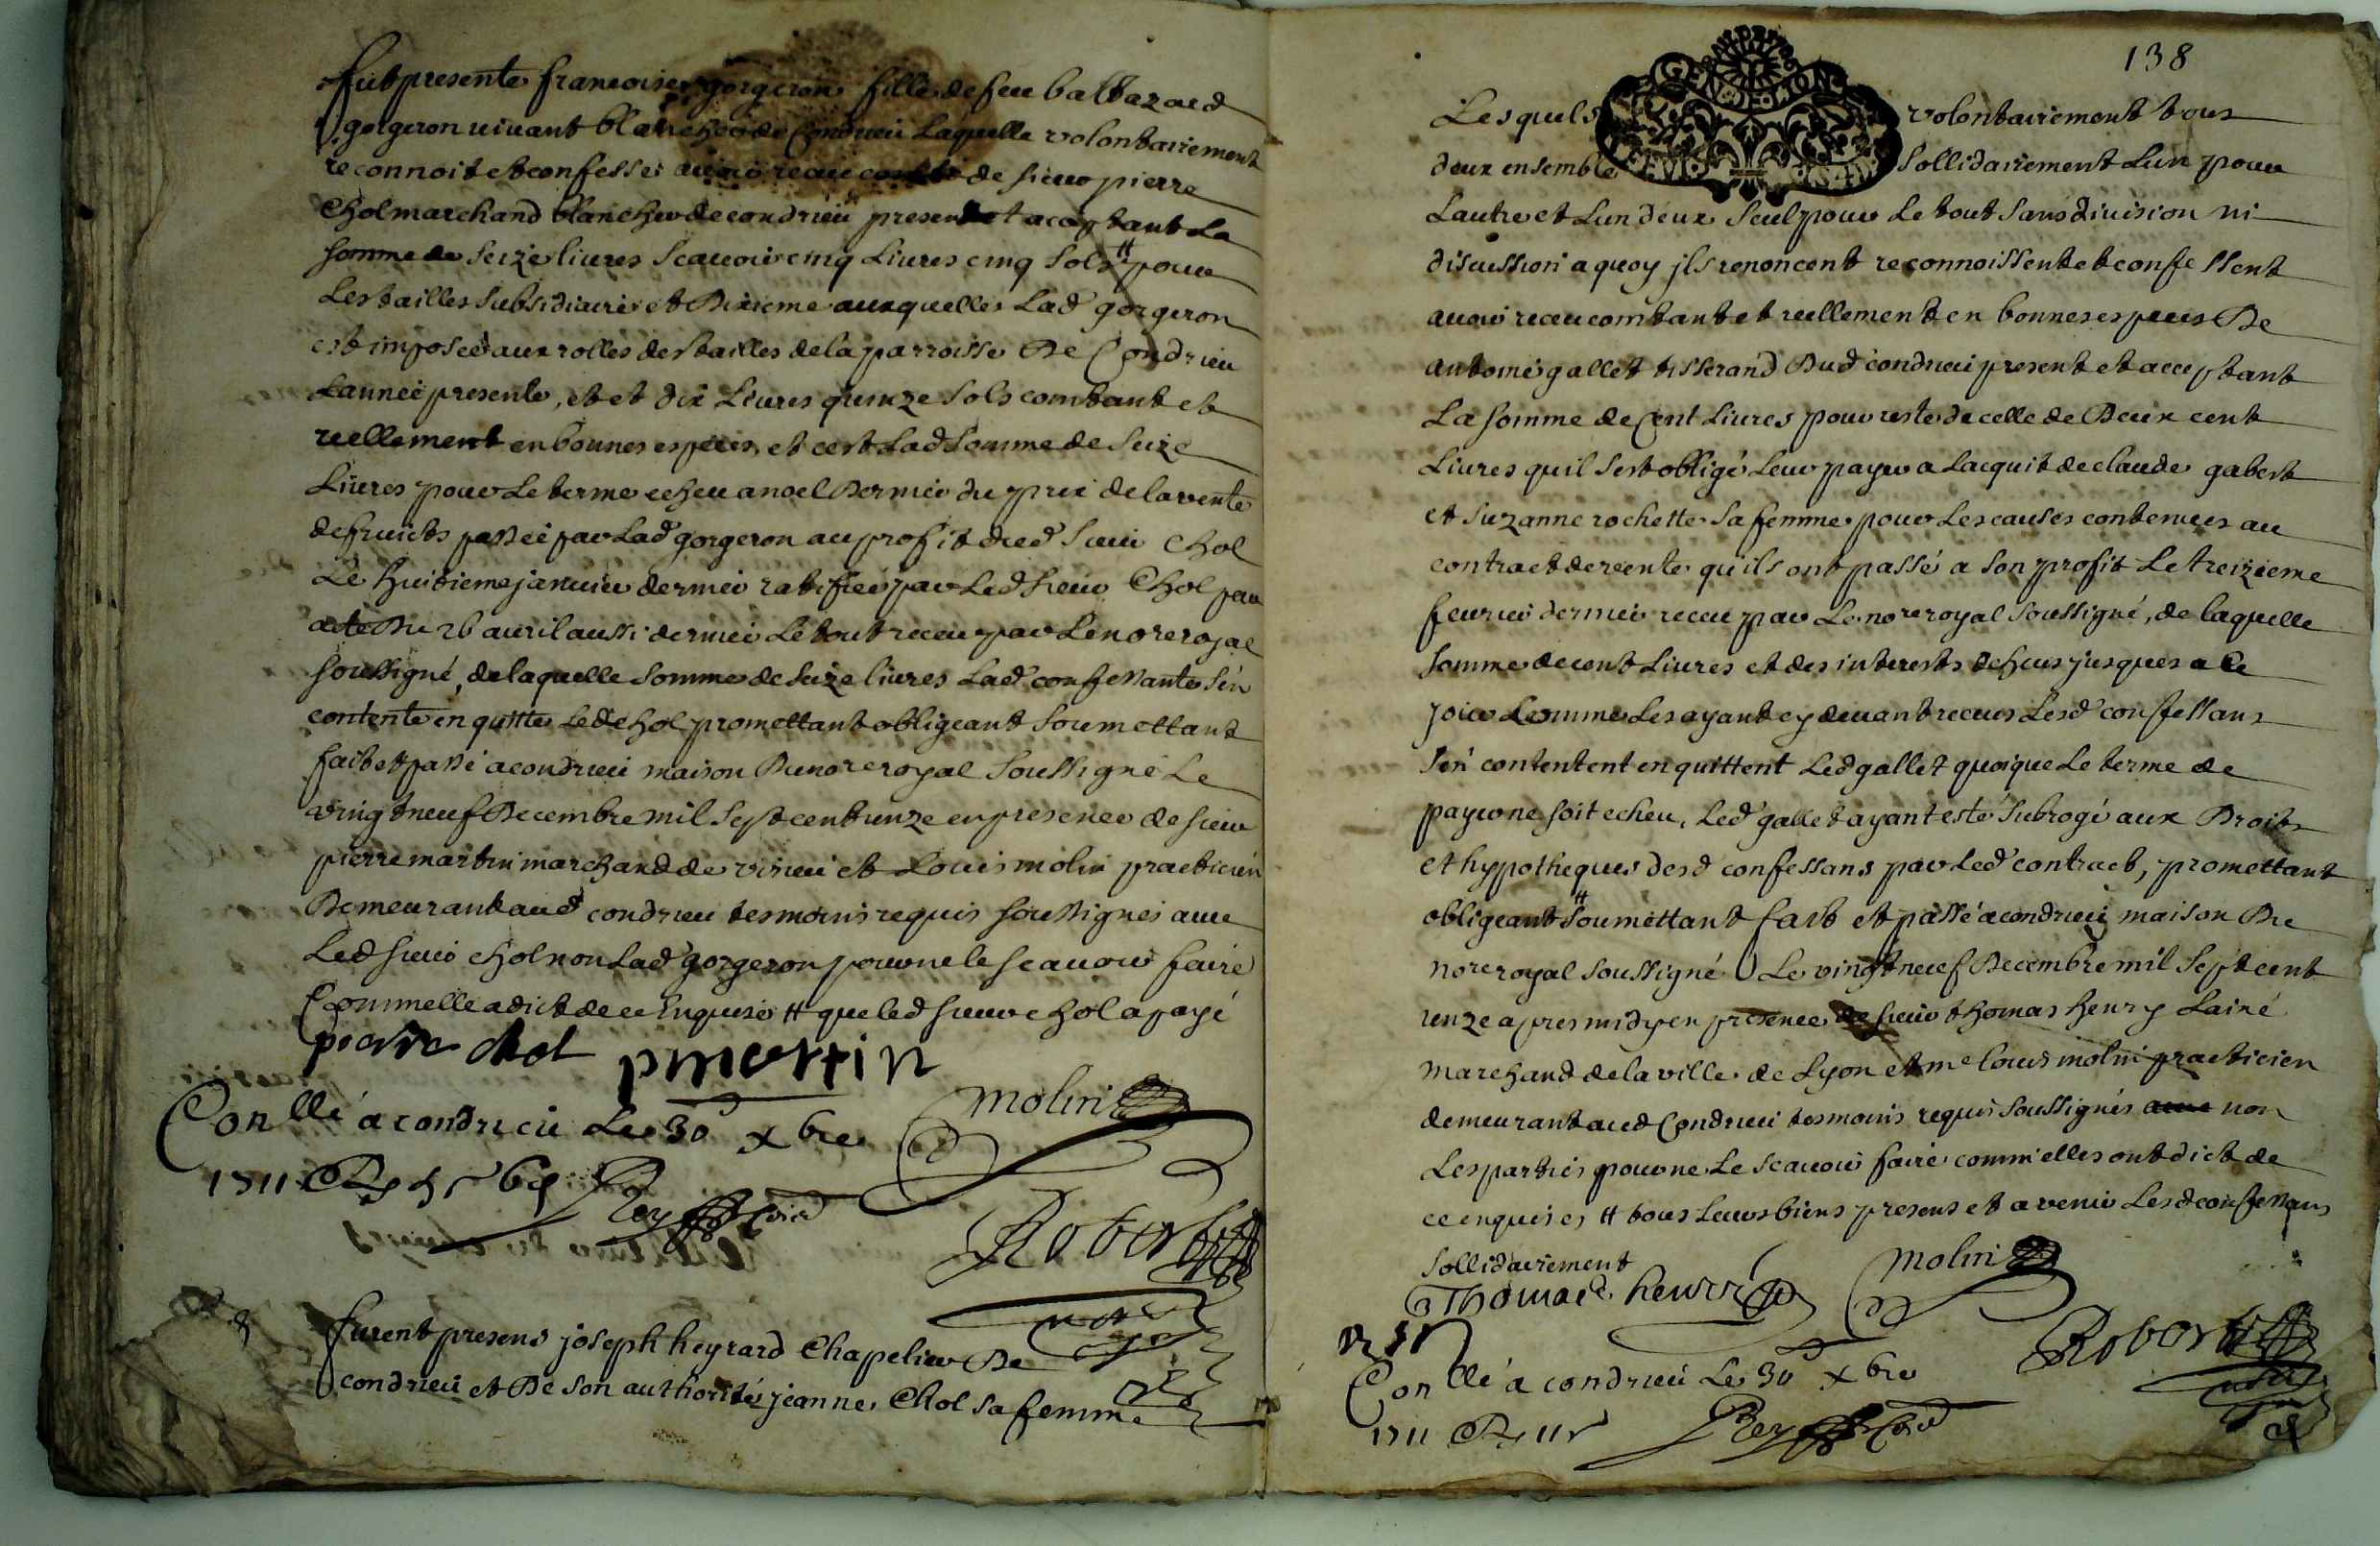 fut presente francoise gorgeron fille de feu baltazard
gorgeron vivant blancher de Condrieu Laquelle volontairement
reconnoit et confesse avoir receu contt de sieur pierre
Chol marchand blancher de condrieu present et aceptant La
somme de seize livres scavoir cinq Livres cinq sols # pour
Les tailles subsidiaire et Dixieme auxquelles Lad gorgeron
est imposeé aux rolles des tailles de la parroisse De Condrieu
Lanneé presente, et et dix Livres quinze sols contant et
reellement en bonnes especes, et cest Lad Somme de Seize
Livres pour Le terme echeu a noel Dernier du prix de la vente
de fruicts passeé par Lad gorgeron au profit dud Sieur Chol
Le huitieme janvier dernier ratiffieé par Led Sieur Chol par
acte Du 26 avril aussi dernier Le tout receu par Le nore royal
soussigné, de laquelle somme de seize livres Lad confessante s'en
contente en quitte Led chol promettant obligeant soumettant
fait et passé a condrieu maison Du nore royal Soussigné Le
vingt neuf Decembre mil Sept cent unze en presence de sieur
pierre martin marchand de virieu et Louis molin practicien
Demeurant aud condrieu tesmoins requis soussignés avec
Led sieur chol non Lad gorgeron pour ne le scavoir faire
Comm'elle a dict de ce Enquise # que led sieur chol a payé
pierre chol pmartin
molin
Conllé a condrieu Le 30 xbre
1711 Rey
Robert
nore
furent presens joseph heyrard Chapelier De
condrieu et De son authorité jeanne Chol sa femme
138
Lesquels volontairement tous
deux ensemble sollidairement Lun pour
Lautre et Lun d'eux seul pour Le tout sans division ni
discussion a quoy jls renoncent reconnoissent et confessent
avoir receu comtant et reellement en bonnes especes De
antoine gallet tisserand Dud condrieu present et acceptant
La somme de Cent Livres pour reste de celle de Deux cent
Livres quil s'est obligé Leur payer a Lacquit de claude gabert
et suzanne rochette sa femme pour Les causes contenues au
contract de vente qu'ils ont passé a son profit Le treizieme
fevrier dernier receu par Le nore royal soussigné, de laquelle
somme de cent Livres et des interests dehcus jusques a Ce
jour Comme Les ayant cy devant receus Lesd confessans
s'en contentent en quittent Led gallet quoique Le terme de
payer ne soit echeu, Led gallet ayant esté subrogé aux Droits
et hypotheques desd confessans par Led contract, promettant
obligeant # soumettant fait et passé a condrieu maison Du
nore royal soussigné Le vingt neuf Decembre mil Sept cent
unze apres midy en presence de sieur thomas henry Lainé
marchand de la ville de Lyon et me Louis molin practicien
demeurant aud Condrieu tesmoins requis soussignés avec non
Les parties pour ne Le scavoir faire comm'elles ont dict de
ce enquises # tous Leurs biens presens et a venir Lesd confessans
sollidairement
Thomas henry molin
Robert
Conllé a condrieu Le 30 xbre
1711 Rey